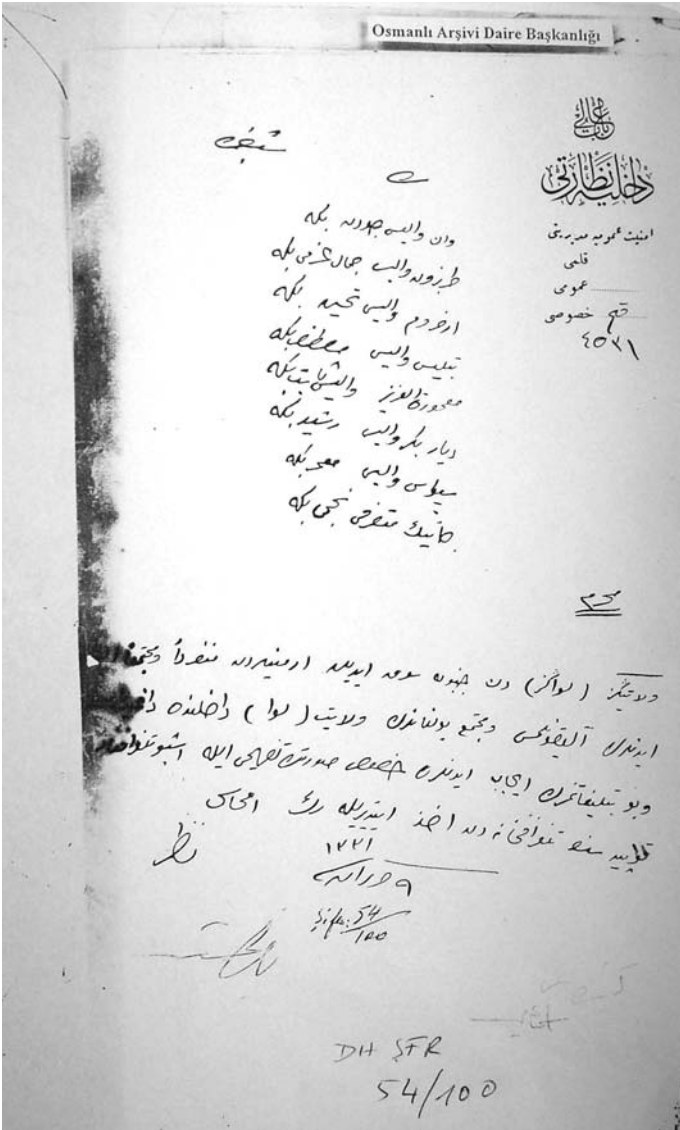 Osmanlı Arşivi Daire Başkanlığı
باب عالی
داخلیه نظارتی
امنیت عمومیه مدیریتی
قلمی
عمومی
خصوصی
٤٥٣١
شفره
وان والیسی جودت بكه
طربزون والیسی جمال عزمی بكه
ارضروم والیسی تحسین بكه
بتلیس والیسی مصطفی بكه
معمورة العزیز والیسی ثابت بكه
دیار بكر والیسی رشید بكه
سیواس والیسی معمر بكه
جانیك متصرفی نجمی بكه
محرم
ولایتكز (لواكز) دن جنوبه سوق ایدیلن ارمنیلردن منفرداً و مجتمعاً
ایدنلرك آلیقونلمسی و مجتمع بولنانلرك ولایت (لوا) داخلنده
و بو تبلیغاتمزك ایجاب ایدنلره خصوصی صورتده تفهیمی ایله اشبو تلغرافنامه
تلغرافخانه دن اخذ ایتدیریله رك امحاسی
١٣٣١
٩ حزیران
Şifre: 54/100
DH ŞFR
54/100